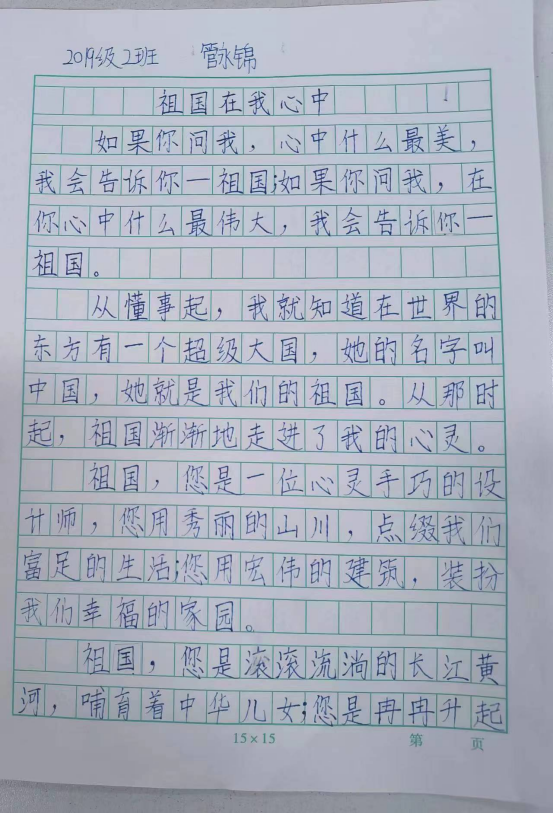 2019级2班 管永锦
祖国在我心中
如果你问我，心中什么最美，
我会告诉你一祖国;如果你问我，在
你心中什么最伟大，我会告诉你一
祖国。
从懂事起，我就知道在世界的
东方有一个超级大国，她的名字叫
中国，她就是我们的祖国。从那时
起，祖国渐渐地走进了我的心灵。
祖国，您是一位心灵手巧的设
计师，您用秀丽的山川，点缀我们
富足的生活;您用宏伟的建筑，装扮
我们幸福的家园。
祖国，您是滚滚流淌的长江黄
河，哺育着中华儿女;您是冉冉升起
15×15 第 页